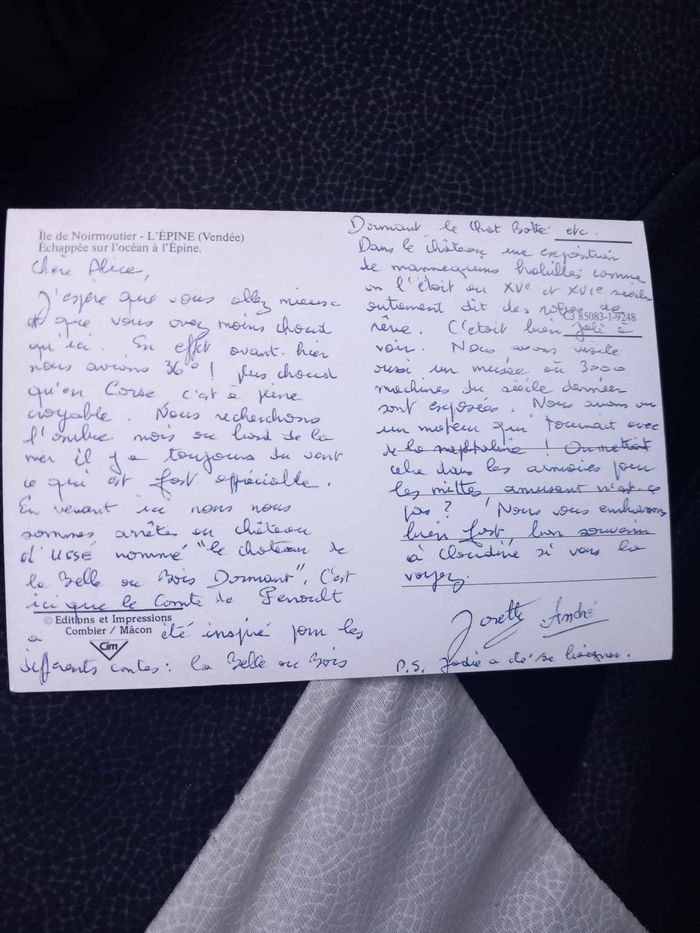 Île de Noirmoutier - L'ÉPINE (Vendée)
Échappée sur l'océan à l'Épine.
Chère Alice,
J'espère que vous allez mieux
et que vous avez moins chaud
qu'ici. En effet avant-hier
nous avions 36° ! plus chaud
qu'en Corse c'est à peine
croyable. Nous recherchons
l'ombre mais au bord de la
mer il y a toujours du vent
ce qui est fort appréciable.
En venant ici nous nous
sommes arrêtés au château
d'USSÉ nommé "le château de
la Belle au Bois Dormant". C'est
ici que le Comte de Perrault
© Editions et Impressions
Combier / Mâcon
Cim
a été inspiré pour les
différents contes : la Belle au Bois
Dormant le Chat Botté etc.
Dans le château une exposition
de mannequins habillés comme
on l'était au XVe et XVIe siècle
autrement dit des robes de
85083-1-9248
rêve. C'était bien joli à
voir. Nous avons visité
aussi un musée où 3000
machines du siècle dernier
sont exposées. Nous avons vu
un moteur qui tournait avec
de la naphtaline ! On mettait
cela dans les armoires pour
les mittes amusant n'est-ce
pas ? Nous vous embrassons
bien fort, bon souvenir
à Claudine si vous la
voyez.
Josette André
P.S. Jodie a été se baigner.